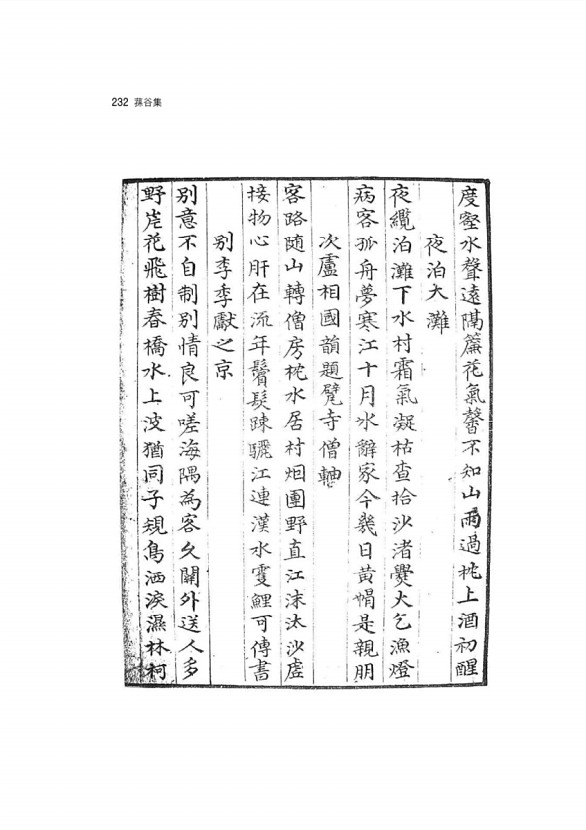 232 蓀谷集
度壑水聲遠隔簾花氣馨不知山雨過枕上酒初醒
夜泊大灘
夜纜泊灘下水村霜氣凝枯査拾沙渚爨火乞漁燈
病客孤舟夢寒江十月水辭家今幾日黃帽是親朋
次盧相國韻題甓寺僧軸
客路隨山轉僧房枕水居村烟圍野直江沫汰沙虛
接物心肝在流年鬢髮踈驪江連漢水雙鯉可傳書
別李季獻之京
別意不自制別情良可嗟海隅為客久關外送人多
野岸花飛樹春橋水上波猶同子規鳥洒淚濕林柯